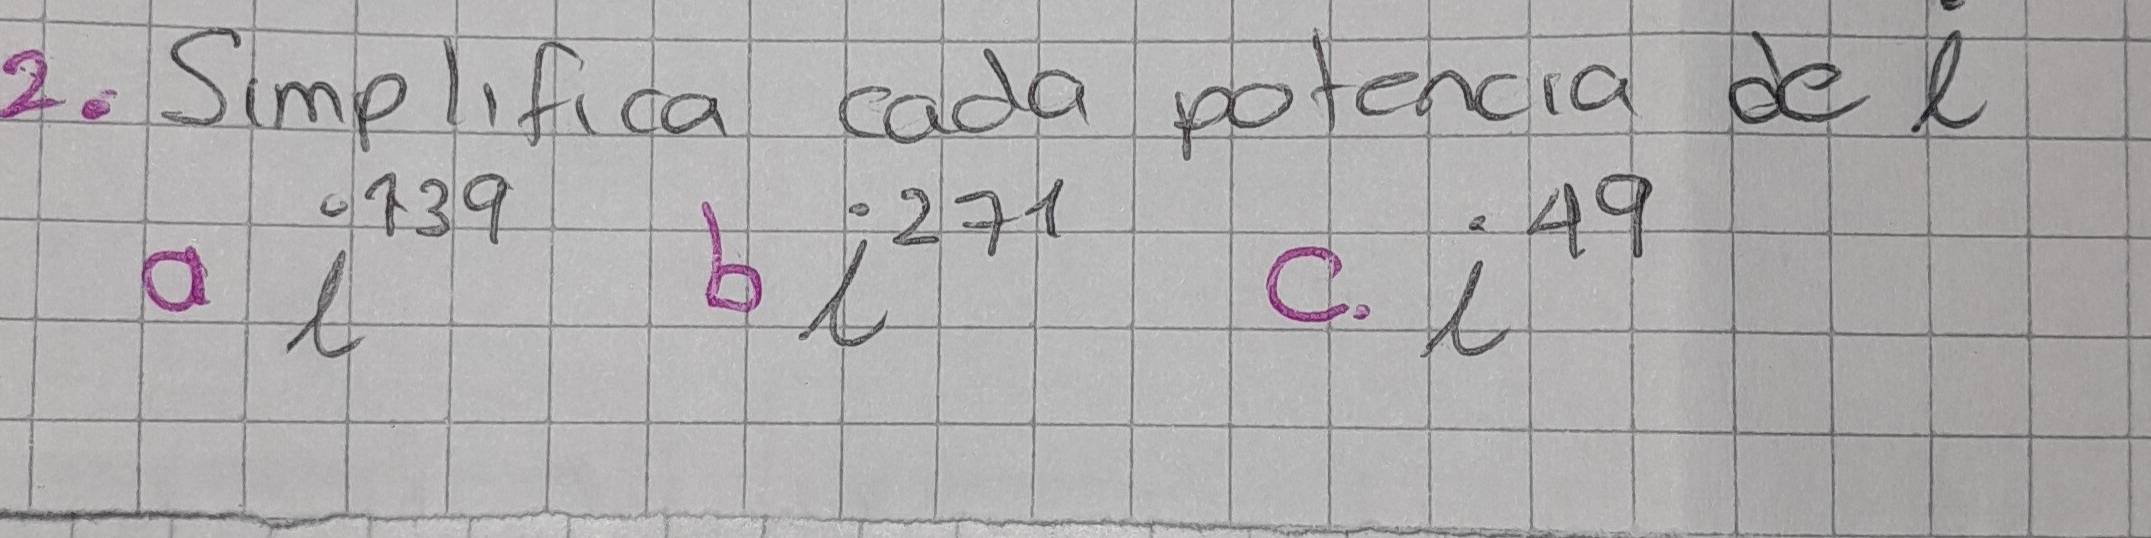 2. Simplifica cada potencia de i
a i¹³⁹ b i²⁷¹ c. i⁴⁹